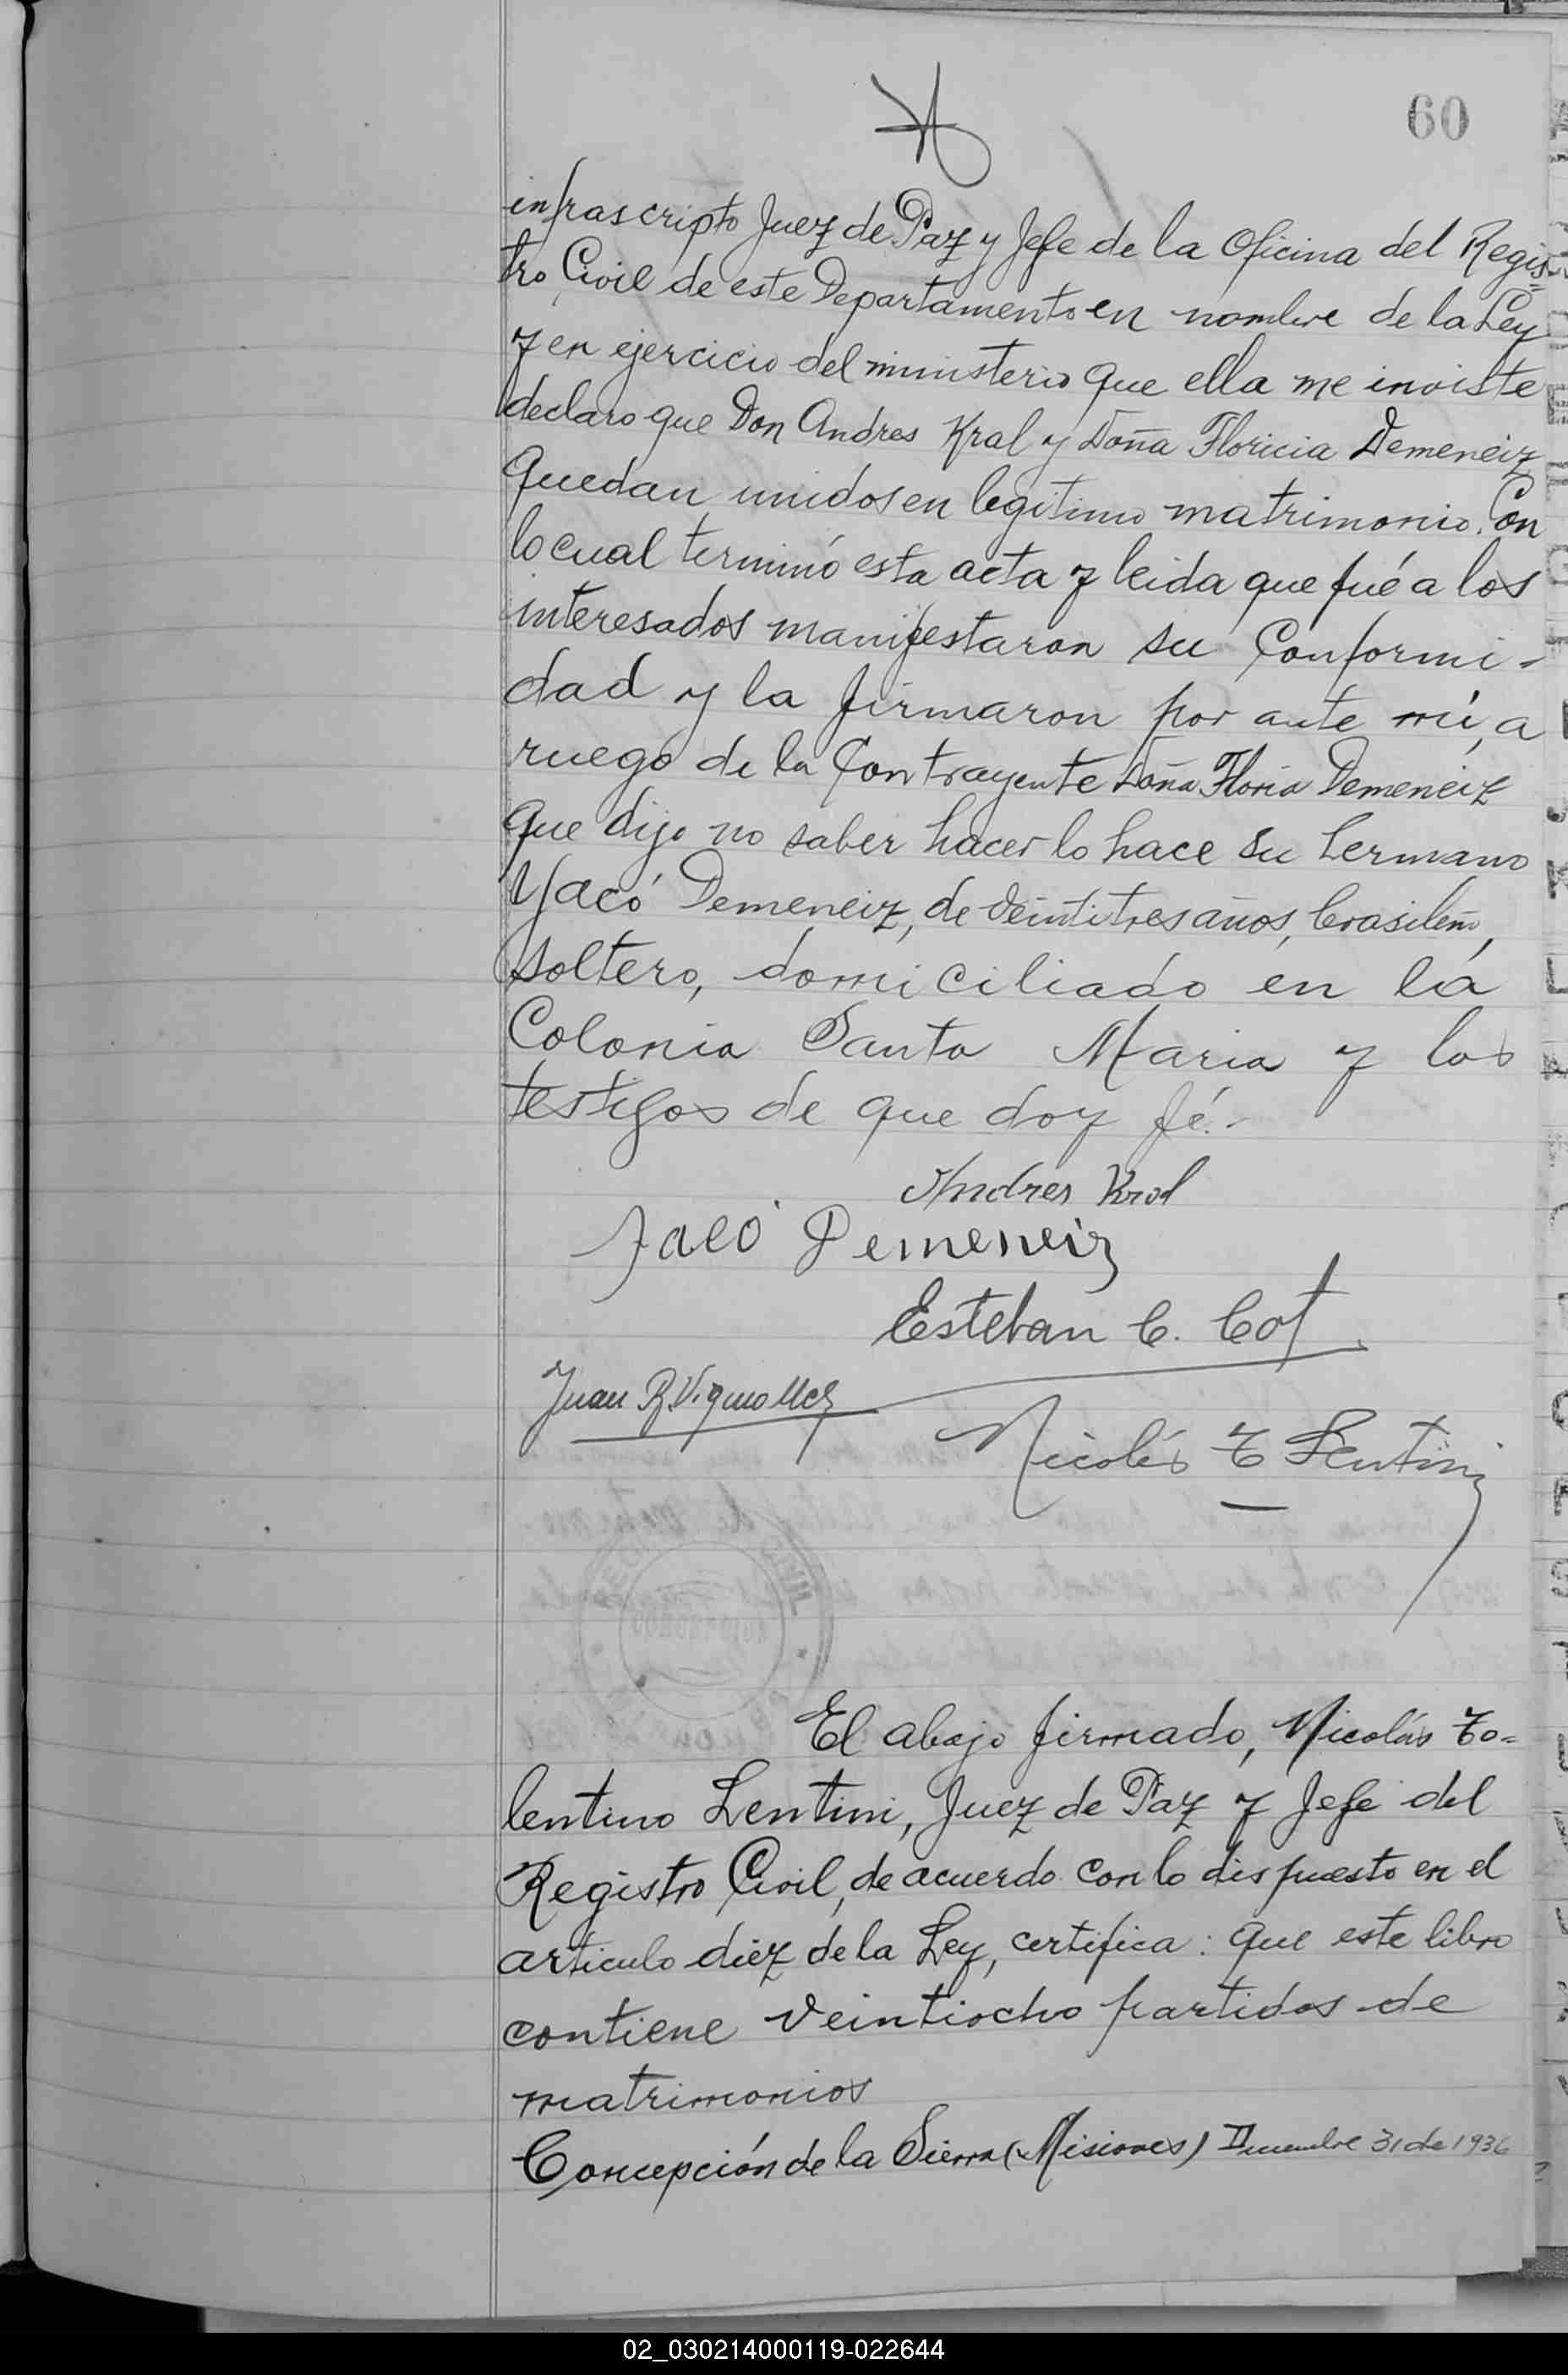 60
infrascripto Juez de Paz y Jefe de la Oficina del Regis=
tro Civil de este Departamento en nombre de la Ley
y en ejercicio del ministerio que ella me inviste
declaro que Don Andres Kral y Doña Floricia Demeneiz
quedan unidos en legitimo matrimonio. Con
lo cual terminó esta acta y leida que fué a los
interesados manifestaron su Conformi-
dad y la firmaron por ante mí, a
ruego de la Contrayente Doña Floria Demeneiz
que dijo no saber hacer lo hace su hermano
Yacó Demeneiz, de veintitres años, brasileño,
soltero, domiciliado en la
Colonia Santa Maria y los
testigos de que doy fé.-
Andres Krol
Jacó Demeneiz
Esteban C. Cot
Juan R. Vignolles
Nicolás T Lentini
REGISTRO CIVIL
CONCEPCION
El abajo firmado, Nicolás To=
lentino Lentini, Juez de Paz y Jefe del
Registro Civil, de acuerdo con lo dispuesto en el
articulo diez de la Ley, certifica: que este libro
contiene veintiocho partidas de
matrimonios
Concepción de la Sierra (Misiones) Diciembre 31 de 1936
02_030214000119-022644